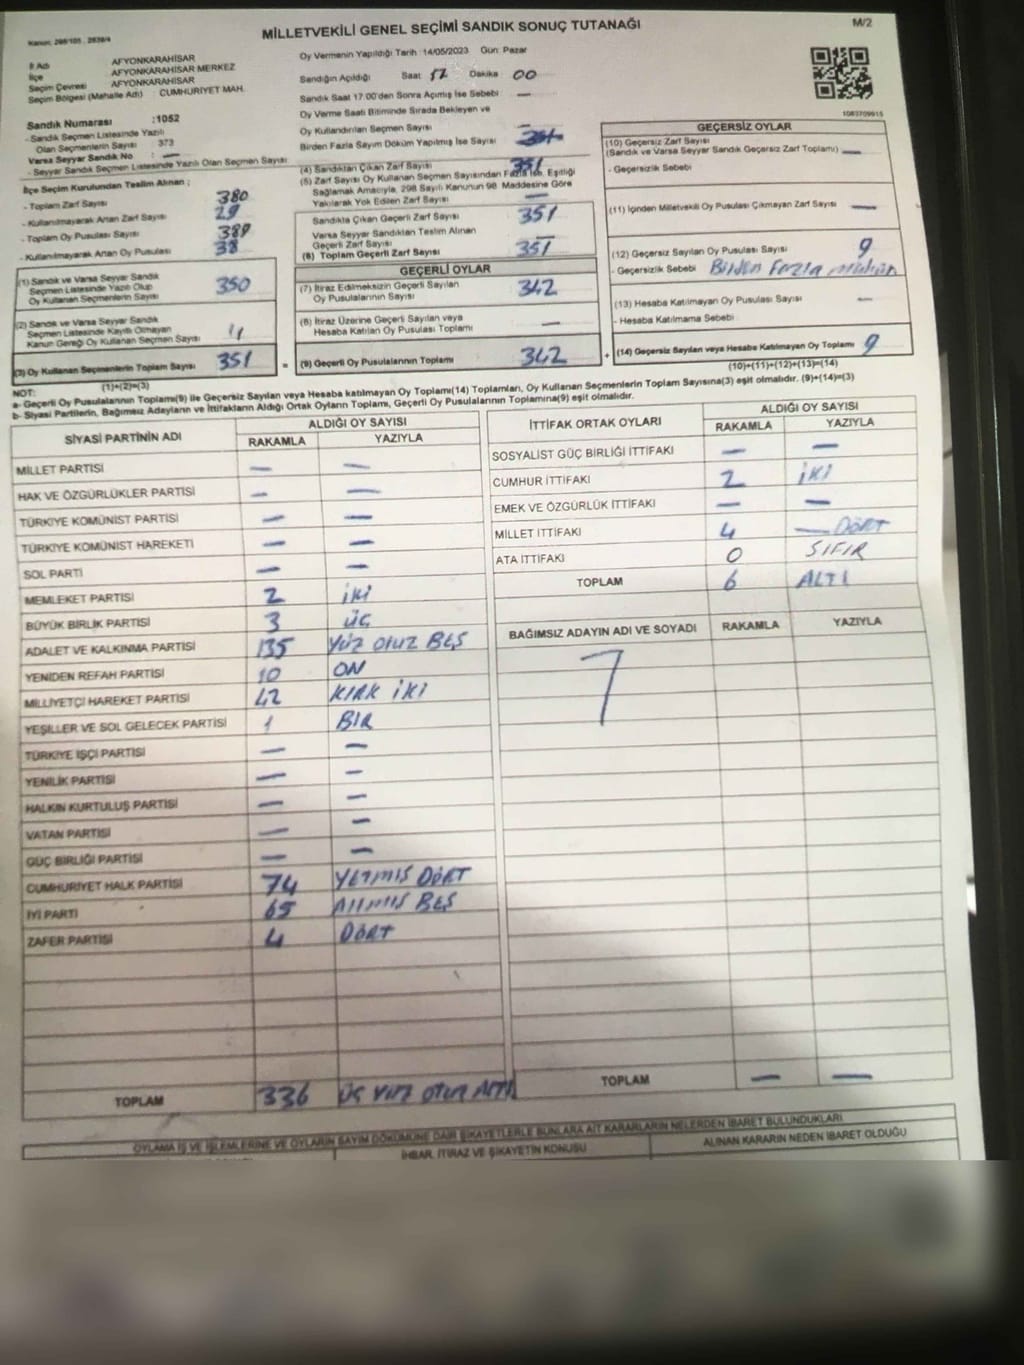 MİLLETVEKİLİ GENEL SEÇİMİ SANDIK SONUÇ TUTANAĞI
M/2
Kanun: 298/105, 2839/4
İl Adı AFYONKARAHİSAR
İlçe AFYONKARAHİSAR MERKEZ
Seçim Çevresi AFYONKARAHİSAR
Seçim Bölgesi (Mahalle Adı) : CUMHURİYET MAH.
Sandık Numarası :1052
- Sandık Seçmen Listesinde Yazılı
Olan Seçmenlerin Sayısı : 373
Varsa Seyyar Sandık No : —
- Seyyar Sandık Seçmen Listesinde Yazılı Olan Seçmen Sayısı:
İlçe Seçim Kurulundan Teslim Alınan ;
- Toplam Zarf Sayısı 380
- Kullanılmayarak Artan Zarf Sayısı 29
- Toplam Oy Pusulası Sayısı 389
- Kullanılmayarak Artan Oy Pusulası 38
(1) Sandık ve Varsa Seyyar Sandık
Seçmen Listesinde Yazılı Olup
Oy Kullanan Seçmenlerin Sayısı 350
(2) Sandık ve Varsa Seyyar Sandık
Seçmen Listesinde Kayıtlı Olmayan
Kanun Gereği Oy Kullanan Seçmen Sayısı
(3) Oy Kullanan Seçmenlerin Toplam Sayısı 351 =
(1)+(2)=(3)
Oy Vermenin Yapıldığı Tarih : 14/05/2023 Gün: Pazar
Sandığın Açıldığı Saat Dakika 00
Sandık Saat 17.00'den Sonra Açılmış İse Sebebi —
Oy Verme Saati Bitiminde Sırada Bekleyen ve
Oy Kullandırılan Seçmen Sayısı —
Birden Fazla Sayım Döküm Yapılmış İse Sayısı
(4) Sandıktan Çıkan Zarf Sayısı 351
(5) Zarf Sayısı Oy Kullanan Seçmen Sayısından Fazla İse, Eşitliği
Sağlamak Amacıyla, 298 Sayılı Kanunun 98. Maddesine Göre
Yakılarak Yok Edilen Zarf Sayısı —
Sandıkta Çıkan Geçerli Zarf Sayısı 351
Varsa Seyyar Sandıktan Teslim Alınan
Geçerli Zarf Sayısı —
(6) Toplam Geçerli Zarf Sayısı 351
GEÇERLİ OYLAR
(7) İtiraz Edilmeksizin Geçerli Sayılan
Oy Pusulalarının Sayısı 342
(8) İtiraz Üzerine Geçerli Sayılan veya
Hesaba Katılan Oy Pusulası Toplamı —
(9) Geçerli Oy Pusulalarının Toplamı 342 +
1083709915
GEÇERSİZ OYLAR
(10) Geçersiz Zarf Sayısı
(Sandık ve Varsa Seyyar Sandık Geçersiz Zarf Toplamı) —
- Geçersizlik Sebebi
(11) İçinden Milletvekili Oy Pusulası Çıkmayan Zarf Sayısı —
(12) Geçersiz Sayılan Oy Pusulası Sayısı 9
- Geçersizlik Sebebi Birden Fazla mühür
(13) Hesaba Katılmayan Oy Pusulası Sayısı —
- Hesaba Katılmama Sebebi
(14) Geçersiz Sayılan veya Hesaba Katılmayan Oy Toplamı 9
(10)+(11)+(12)+(13)=(14)
NOT:
a- Geçerli Oy Pusulalarının Toplamı(9) ile Geçersiz Sayılan veya Hesaba katılmayan Oy Toplamı(14) Toplamları, Oy Kullanan Seçmenlerin Toplam Sayısına(3) eşit olmalıdır. (9)+(14)=(3)
b- Siyasi Partilerin, Bağımsız Adayların ve İttifakların Aldığı Ortak Oyların Toplamı, Geçerli Oy Pusulalarının Toplamına(9) eşit olmalıdır.
SİYASİ PARTİNİN ADI ALDIĞI OY SAYISI
RAKAMLA YAZIYLA
MİLLET PARTİSİ — —
HAK VE ÖZGÜRLÜKLER PARTİSİ — —
TÜRKİYE KOMÜNİST PARTİSİ — —
TÜRKİYE KOMÜNİST HAREKETİ — —
SOL PARTİ — —
MEMLEKET PARTİSİ 2 İKİ
BÜYÜK BİRLİK PARTİSİ 3 ÜÇ
ADALET VE KALKINMA PARTİSİ 135 YÜZ OTUZ BEŞ
YENİDEN REFAH PARTİSİ 10 ON
MİLLİYETÇİ HAREKET PARTİSİ 42 KIRK İKİ
YEŞİLLER VE SOL GELECEK PARTİSİ 1 BİR
TÜRKİYE İŞÇİ PARTİSİ — —
YENİLİK PARTİSİ — —
HALKIN KURTULUŞ PARTİSİ — —
VATAN PARTİSİ — —
GÜÇ BİRLİĞİ PARTİSİ — —
CUMHURİYET HALK PARTİSİ 74 YETMİŞ DÖRT
İYİ PARTİ 65 ALTMIŞ BEŞ
ZAFER PARTİSİ 4 DÖRT
TOPLAM 336 ÜÇ YÜZ OTUZ ALTI
İTTİFAK ORTAK OYLARI ALDIĞI OY SAYISI
RAKAMLA YAZIYLA
SOSYALİST GÜÇ BİRLİĞİ İTTİFAKI — —
CUMHUR İTTİFAKI 2 İKİ
EMEK VE ÖZGÜRLÜK İTTİFAKI — —
MİLLET İTTİFAKI 4 — DÖRT
ATA İTTİFAKI 0 SIFIR
TOPLAM 6 ALTI
BAĞIMSIZ ADAYIN ADI VE SOYADI RAKAMLA YAZIYLA
TOPLAM — —
OYLAMA İŞ VE İŞLEMLERİNE VE OYLARIN SAYIM DÖKÜMÜNE DAİR ŞİKAYETLERLE BUNLARA AİT KARARLARIN NELERDEN İBARET BULUNDUKLARI
İHBAR, İTİRAZ VE ŞİKAYETİN KONUSU ALINAN KARARIN NEDEN İBARET OLDUĞU